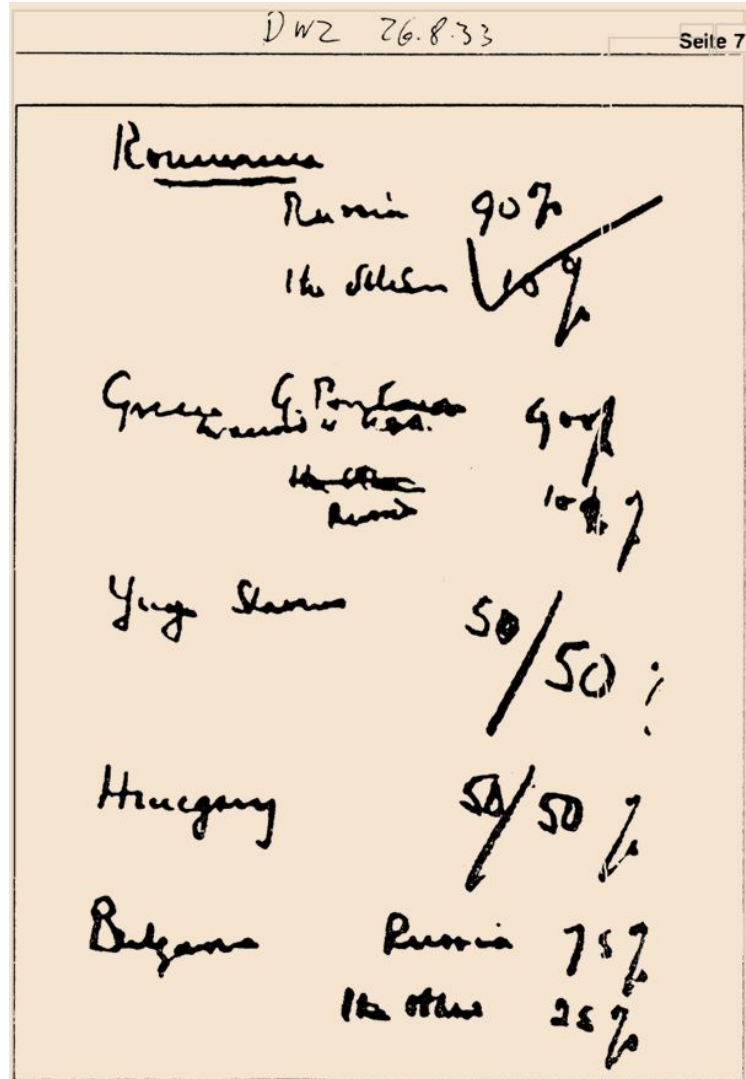 DWZ 26.8.33
Seite 7
Roumania
Russia 90%
The others 10%
Greece G. Britain 90%
in accord w USA.
The others
Russia 10%
Yugo Slavia 50/50%
Hungary 50/50%
Bulgaria Russia 75%
The others 25%